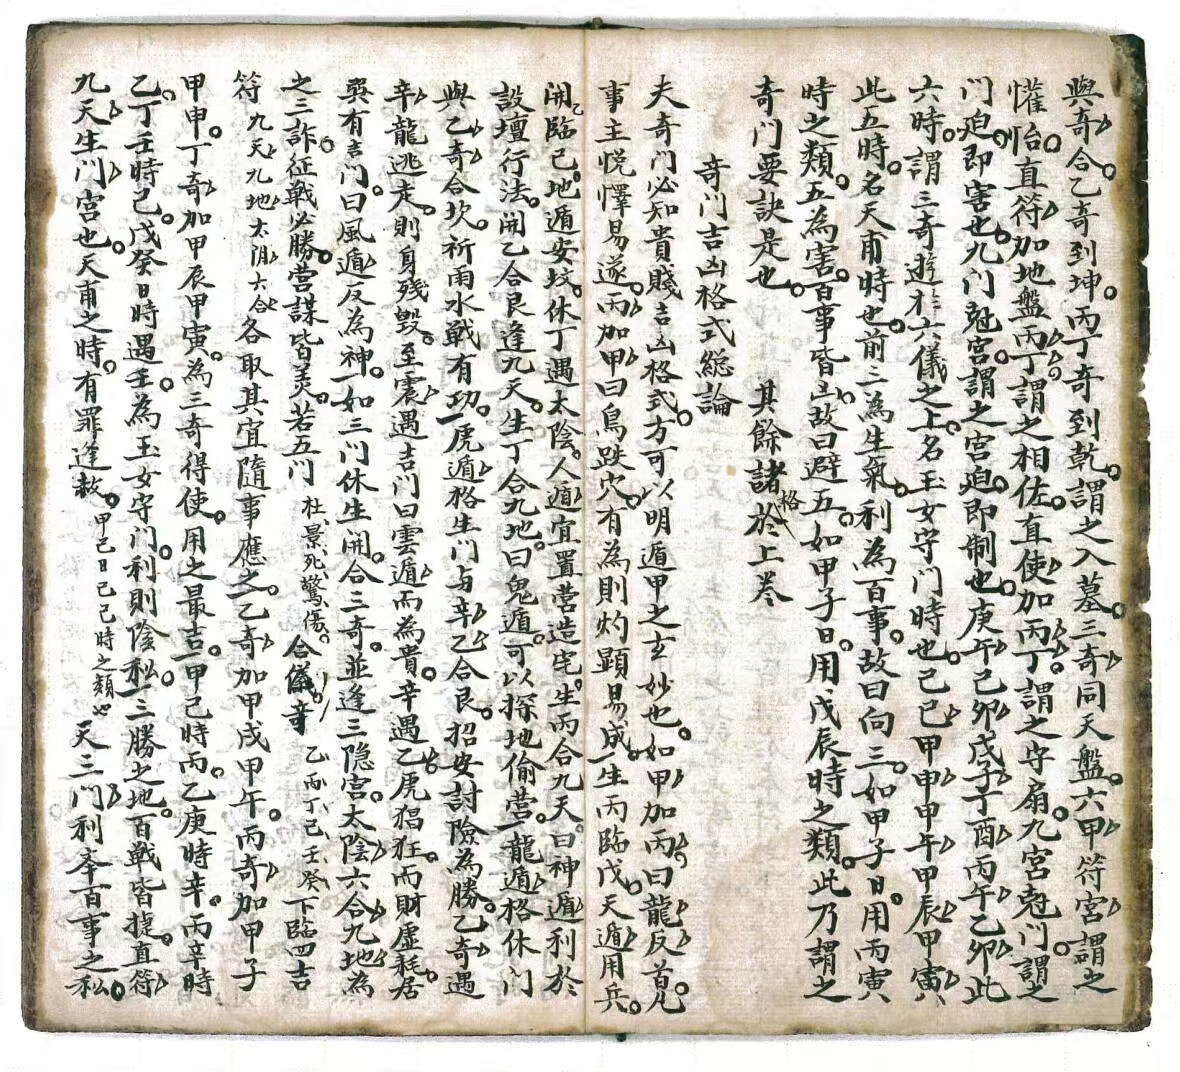 與奇合乙奇到坤丙丁奇到乾謂之入墓三奇同天盤六甲符宮謂之
懽怡直符加地盤丙丁謂之相佐直使加丙丁謂之守扇九宮尅门謂之
门迫即害也九门尅宮謂之宮迫即制也庚午己卯戊子丁酉丙午乙卯此
六時謂三奇遊於六儀之上名玉女守门時也己巳甲申甲午甲辰甲寅
此五時名天甫時也前三為生氣利為百事故曰向三如甲子日用丙寅
時之類五為害百事皆凶故曰避五如甲子日用戊辰時之類此乃謂之
奇门要訣是也　其餘諸格於上卷
奇门吉凶格式総論
夫奇门必知貴賤吉凶格式方可以明遁甲之玄妙也如甲加丙曰龍反首凡
事主悦懌易遂丙加甲曰鳥跌穴有為則灼顯易成生丙臨戊天遁用兵
開臨己地遁安坟休丁遇太陰人遁宜置营造宅生丙合九天曰神遁利於
設壇行法開乙合艮逢九天生丁合九地曰鬼遁可以探地偷营龍遁格休门
與乙奇合坎祈雨水戰有功虎遁格生门与辛乙合艮招安討險為勝乙奇遇
辛龍逃走則身残毀至震遇吉门曰雲遁而為貴辛遇乙虎猖狂而財虛耗居
巽有吉门曰風遁反為神如三门休生開合三奇並逢三隐宮太陰六合九地為
之三詐征戰必勝营謀皆美若五门杜景死驚傷合儀奇乙丙丁己壬癸下臨四吉
符九天九地太阴六合各取其宜隨事應之乙奇加甲戌甲午丙奇加甲子
甲申丁奇加甲辰甲寅為三奇得使用之最吉甲己時丙乙庚時辛丙辛時
乙丁壬時己戊癸日時遇壬為玉女守门利則陰私三勝之地百戰皆捷直符
九天生门宮也天甫之時有罪逢赦甲己日己巳時之類也天三门利奉百事之私